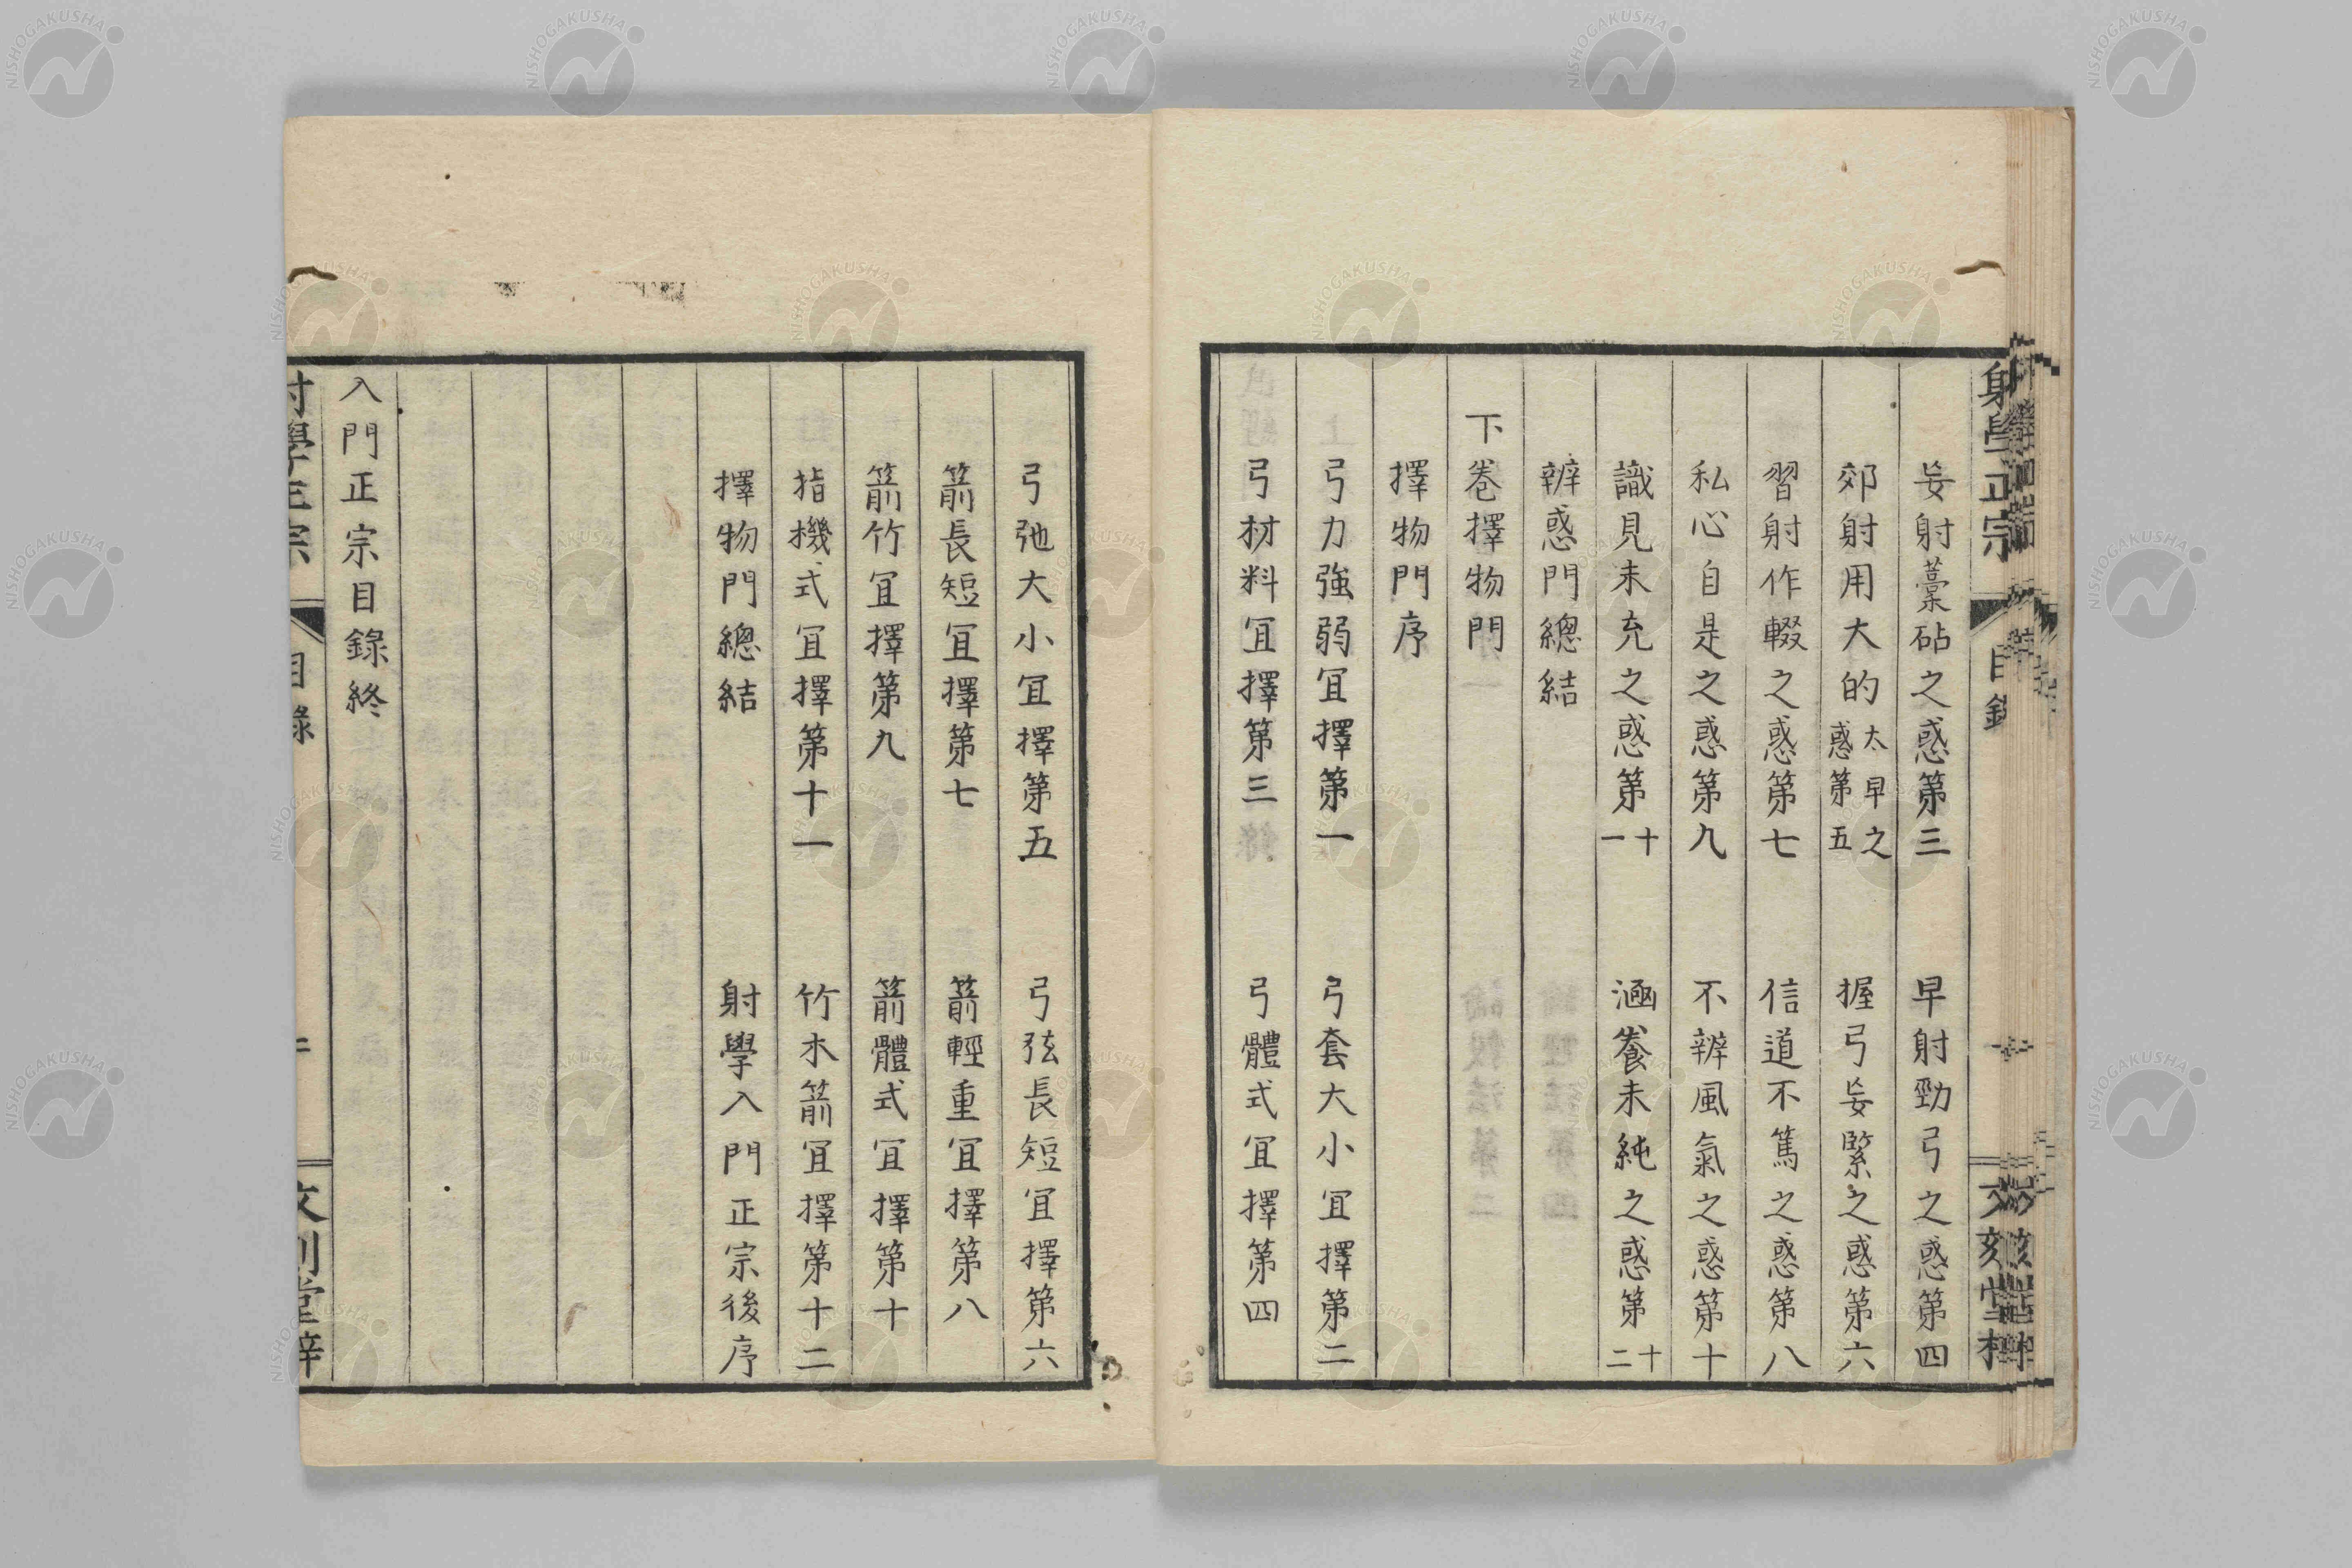 射學正宗 目錄
妄射藁砧之惑第三 早射勁弓之惑第四
郊射用大的太早之惑第五 握弓妄緊之惑第六
習射作輟之惑第七 信道不篤之惑第八
私心自是之惑第九 不辨風氣之惑第十
識見未充之惑第十一 涵養未純之惑第十二
辨惑門總結
下卷擇物門
擇物門序
弓力強弱宜擇第一 弓套大小宜擇第二
弓材料宜擇第三 弓體式宜擇第四
弓弛大小宜擇第五 弓弦長短宜擇第六
箭長短宜擇第七 箭輕重宜擇第八
箭竹宜擇第九 箭體式宜擇第十
指機式宜擇第十一 竹木箭宜擇第十二
擇物門總結 射學入門正宗後序
入門正宗目錄終
射學正宗 目錄
NISHOGAKUSHA